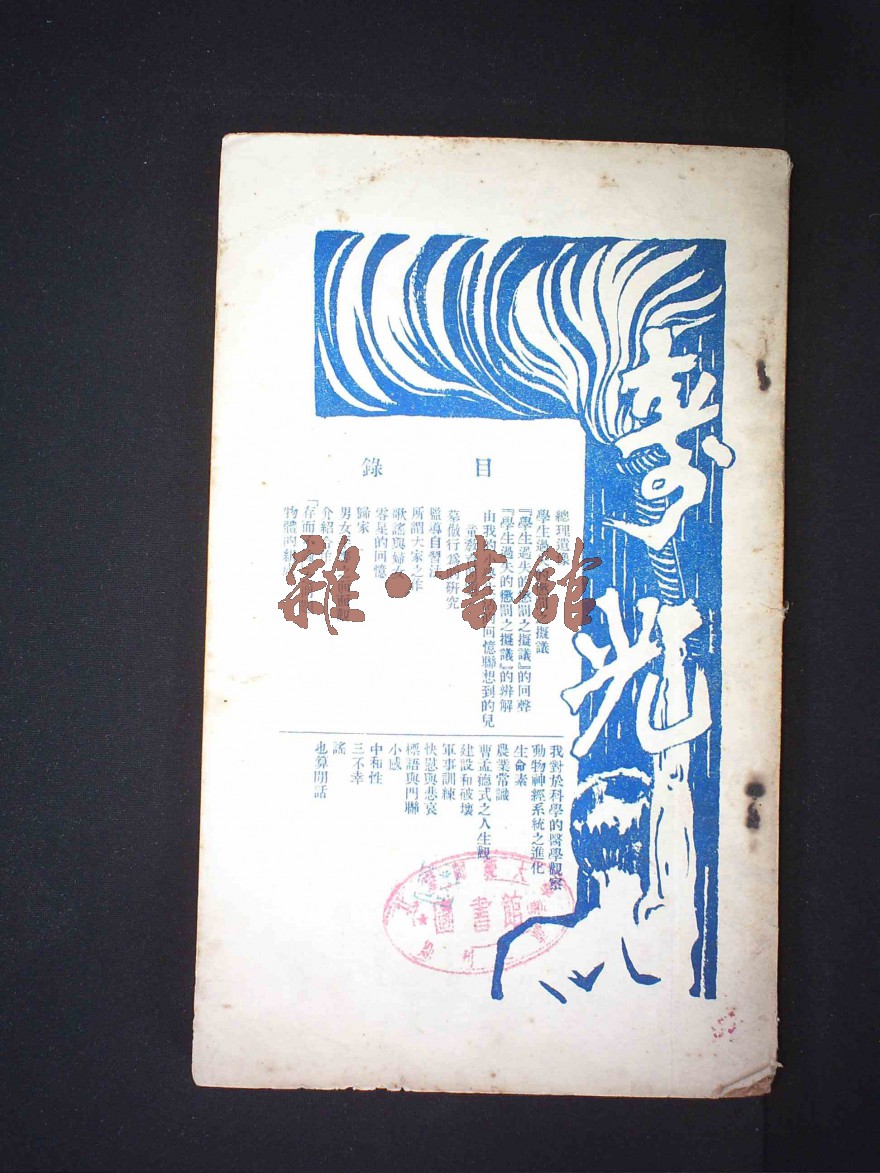 光
目錄
總理遺
學生過
擬議
『學生過失的懲罰之擬議』的回聲
『學生過失的懲罰之擬議』的辨解
由我的
回憶聯想到的兒
摹倣行為的研究
監導自習法
所謂大家之作
歌謠與婦女
零星的回憶
歸家
男女
介紹
『存而
物體的
我對於科學的醫學觀察
動物神經系統之進化
生命素
農業常識
曹孟德式之人生觀
建設和破壞
軍事訓練
快慰與悲哀
標語與門聯
小感
中和性
三不幸
謠
也算閒話
雜·書館
圖書館